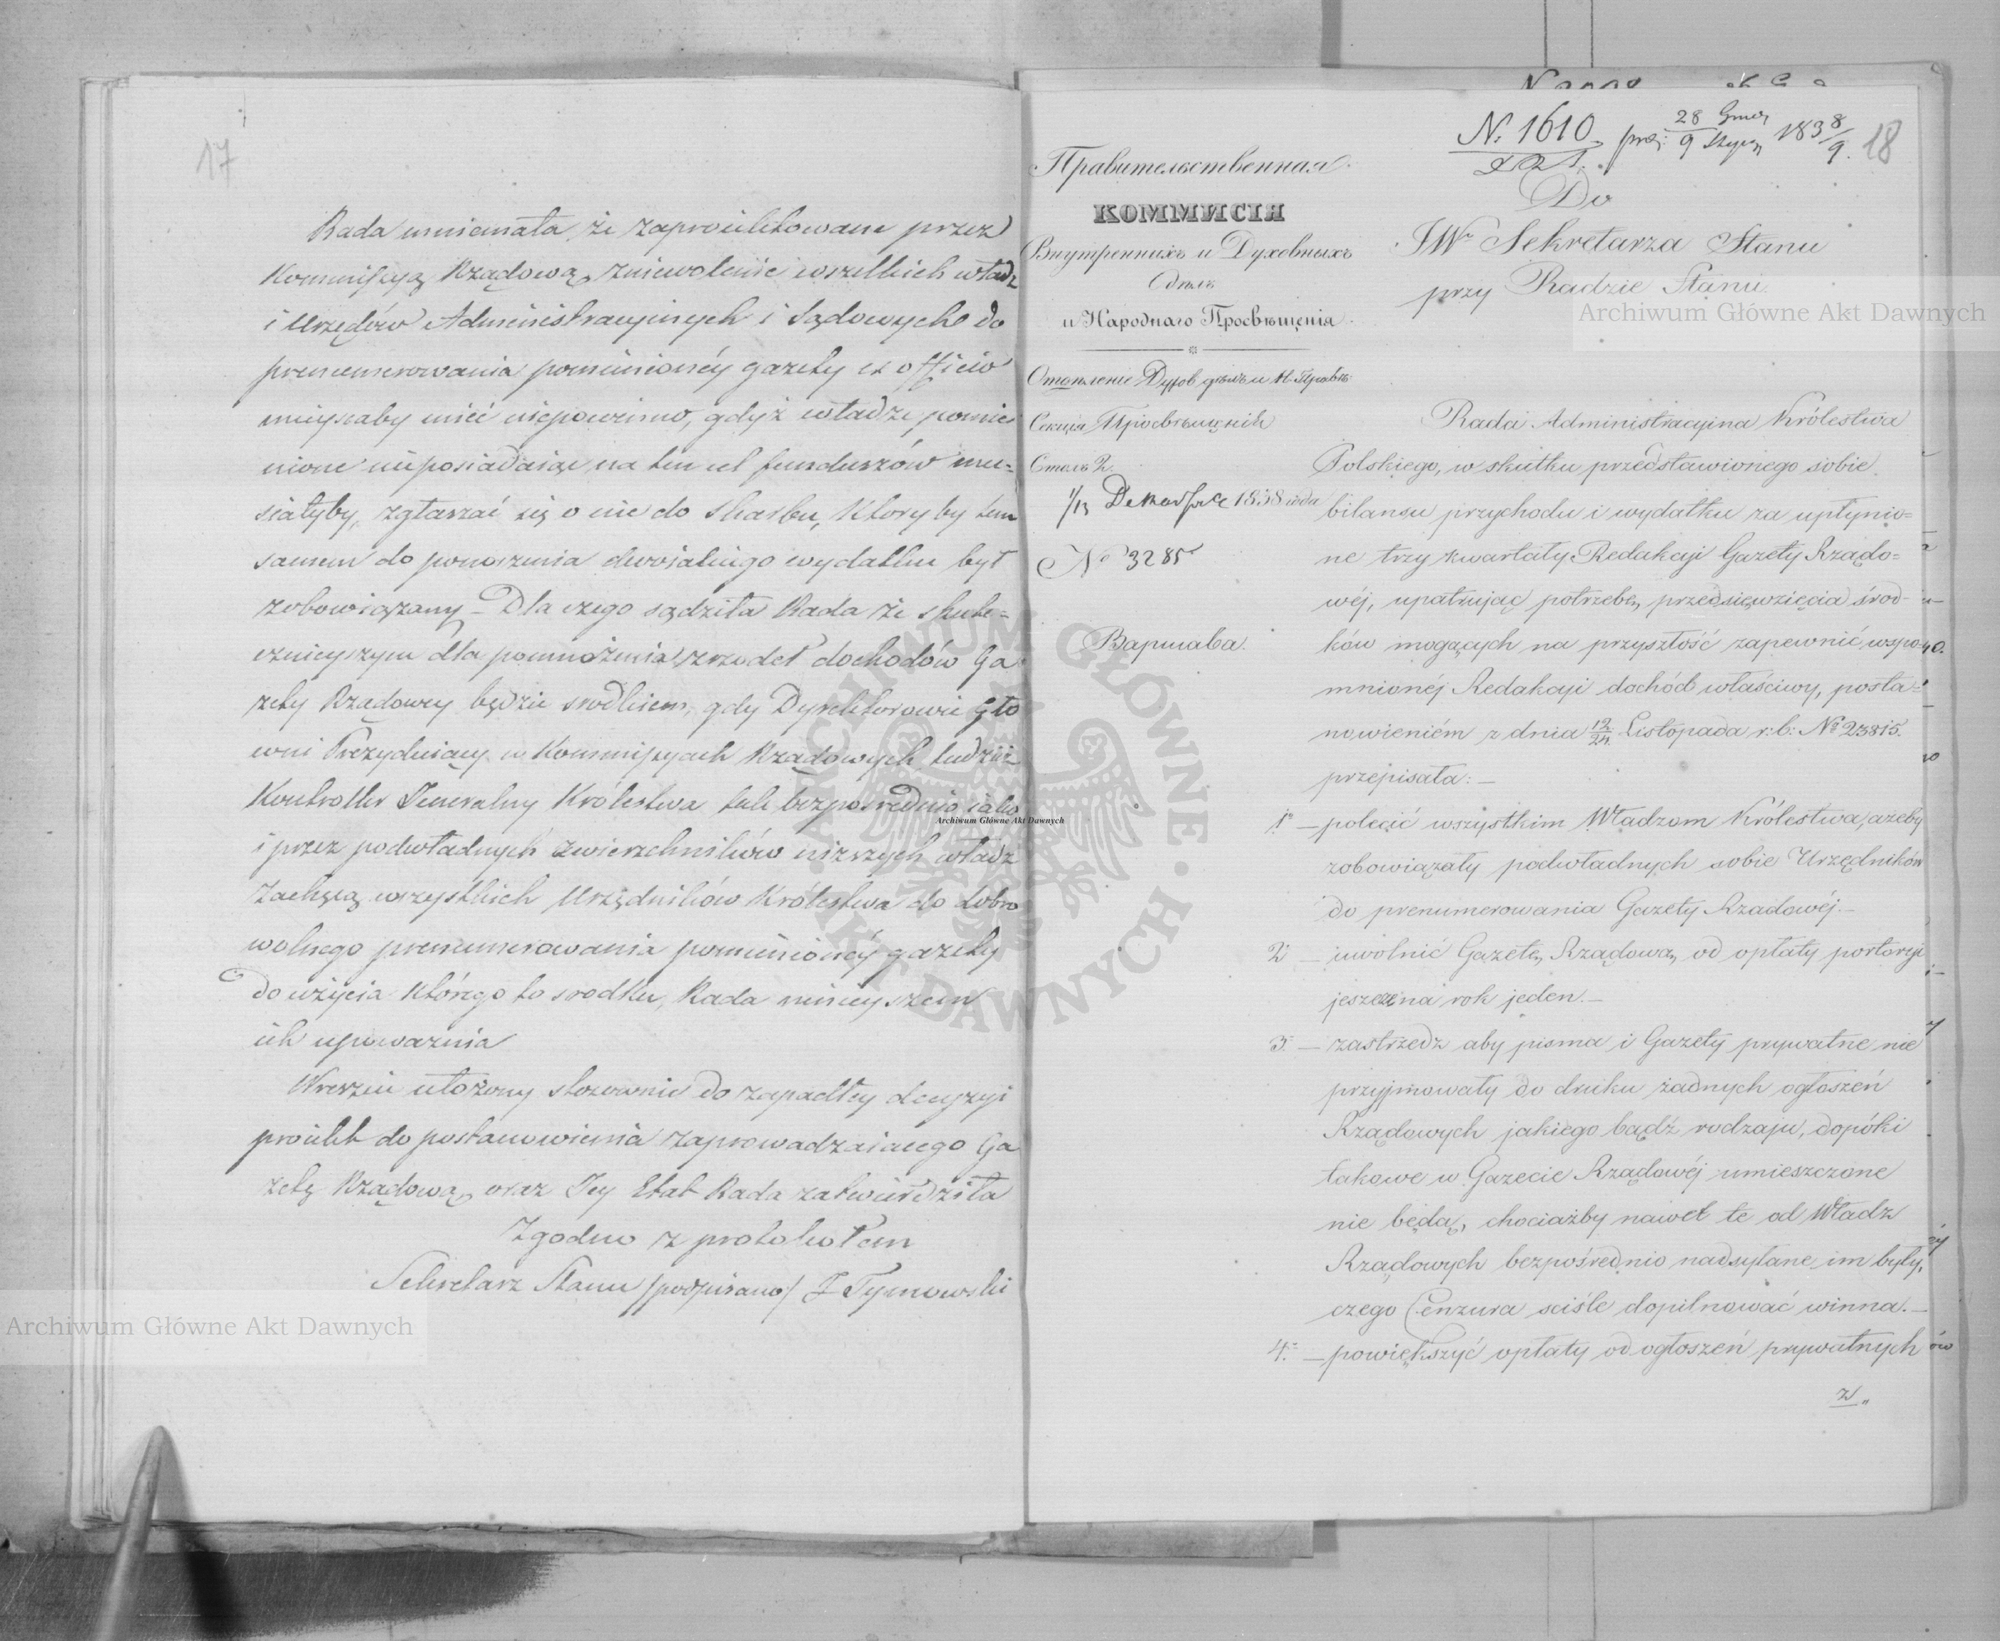 17
Rada mniemała że zaproiektowane przez
Kommissyą Rządową zniewolenie wszelkich władz
i Urzędów Administracyinych i Sądowych do
prenumerowania pomienionéy gazety ex officio
mieysaby mieć niepowinno, gdyż władze pomie
nione nieposiadaiąc na ten cel funduszów mu-
siałyby, zgłaszać się o nie do Skarbu, który by tém
samem do ponoszenia dwoiakiego wydatku był
zobowiązany – Dla czego sądziła Rada że skute-
cznieyszym dla pomnożenia zrzodeł dochodów Ga
zety Rządowey będzie srodkiem, gdy Dyrektorowie Gło
wni Prezyduiący w Kommissyach Rządowych tudzież
Kontroller Jeneralny Królestwa tak bezpośrednio iako
i przez podwładnych zwierzchników niższych władz
Zachęcą wszystkich Urzędników Królestwa do dobro
wolnego prenumerowania pomienionéy gazety
do użycia którego to srodku, Rada ninieyszem
ich upoważnia
Wreszcie ułożony stosownie do zapadłey decyzyi
proiekt do postanowienia zaprowadzaiącego Ga
zetę Rządową oraz Jey Etat Rada zatwierdziła
Zgodno z protokołem
Sekretarz Stanu /podpisano/ J Tymowski
Правительственная
КОММИСІЯ
Внутреннихъ и Духовныхъ
Дѣлъ
и Народнаго Просвѣщенія.
Отдѣленіе Духов. дѣлъ и Н. Просвѣ:
Секція Просвѣщенія
Столъ 2.
1/13 Декабря 1838 года
№ 3285
Варшава.
N: 1610 prez: 28 Grud / 9 Stycz 1838/9. 18
Do
JWo Sekretarza Stanu
przy Radzie Stanu.
Rada Administracyjna Królestwa
Polskiego, w skutku przedstawionego sobie
bilansu przychodu i wydatku za upłynio-
ne trzy kwartały Redakcji Gazety Rządo-
wéj, upatrując potrzebę przedsięwzięcia środ-
ków mogących na przyszłość zapewnić wspo-
mnionéj Redakcji dochód właściwy, posta-
nowieniém z dnia 12/24 Listopada r: b: No 23815.
przepisała: –
1o – polecić wszystkim Władzom Królestwa, ażeby
zobowiązały podwładnych sobie Urzędników
do prenumerowania Gazety Rządowéj. –
2 – uwolnić Gazetę Rządową od opłaty portorji
jeszcze na rok jeden. –
3. – zastrzedz aby pisma i Gazety prywatne nie
przyjmowały do druku żadnych ogłoszeń
Rządowych jakiego bądź rodzaju, dopóki
takowe w Gazecie Rządowéj umieszczone
nie będą, chociażby nawet te od Władz
Rządowych bezpośrednio nadsyłane im były,
czego Cenzura ściśle dopilnować winna. –
4. – powiększyć opłaty od ogłoszeń prywatnych
z „
Archiwum Główne Akt Dawnych
Archiwum Główne Akt Dawnych
Archiwum Główne Akt Dawnych
ARCHIWUM GŁÓWNE · AKT DAWNYCH ·